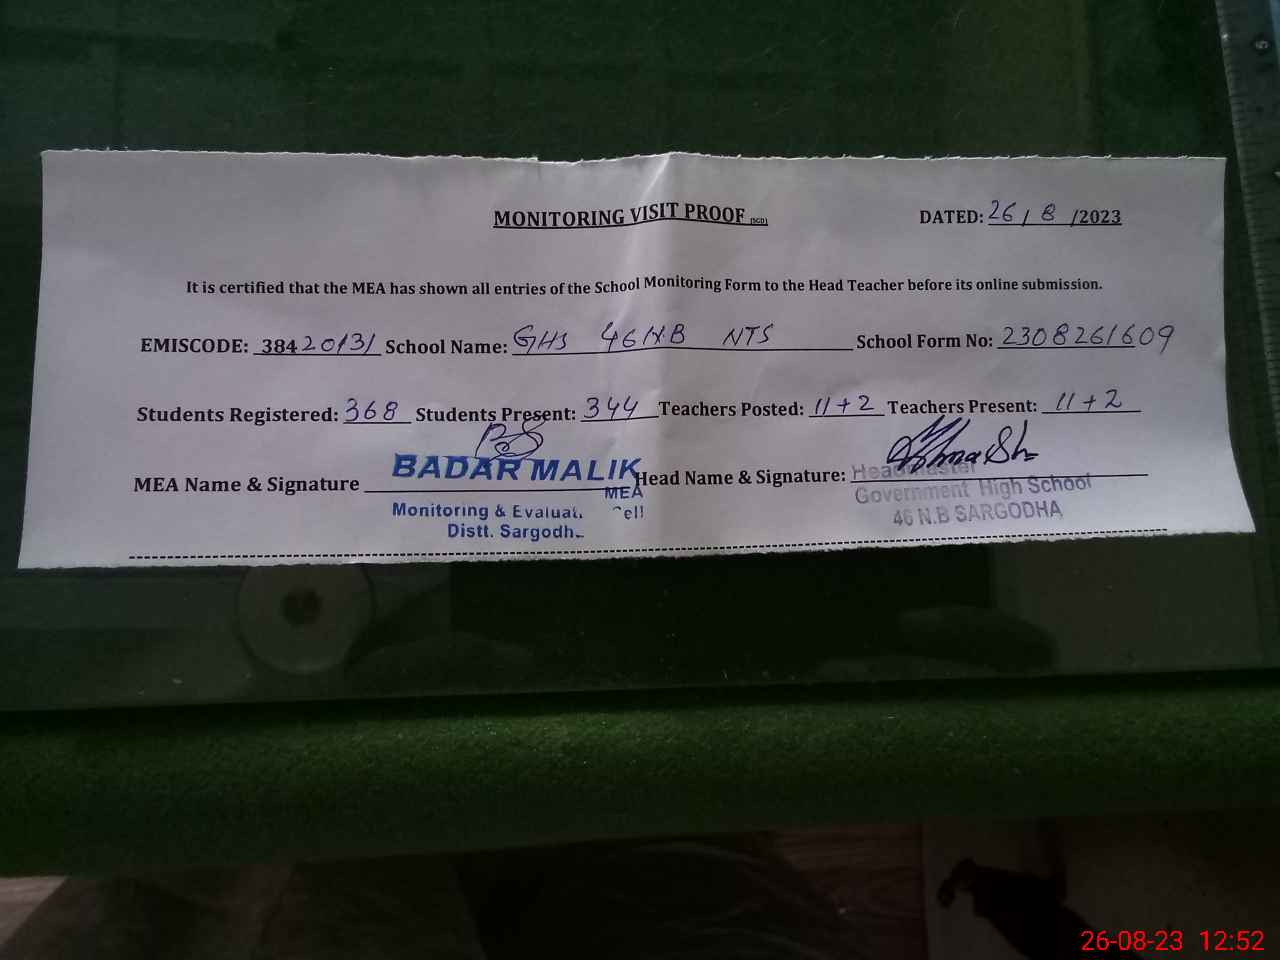 MONITORING VISIT PROOF (SGD) DATED: 26 / 8 /2023
It is certified that the MEA has shown all entries of the School Monitoring Form to the Head Teacher before its online submission.
EMISCODE: 38420131 School Name: GHS 46 N.B NTS School Form No: 2308261609
Students Registered: 368 Students Present: 344 Teachers Posted: 11+2 Teachers Present: 11+2
MEA Name & Signature BADAR MALIK Head Name & Signature: Headmaster
MEA Government High School
Monitoring & Evaluat. Cell 46 N.B SARGODHA
Distt. Sargodh
26-08-23 12:52